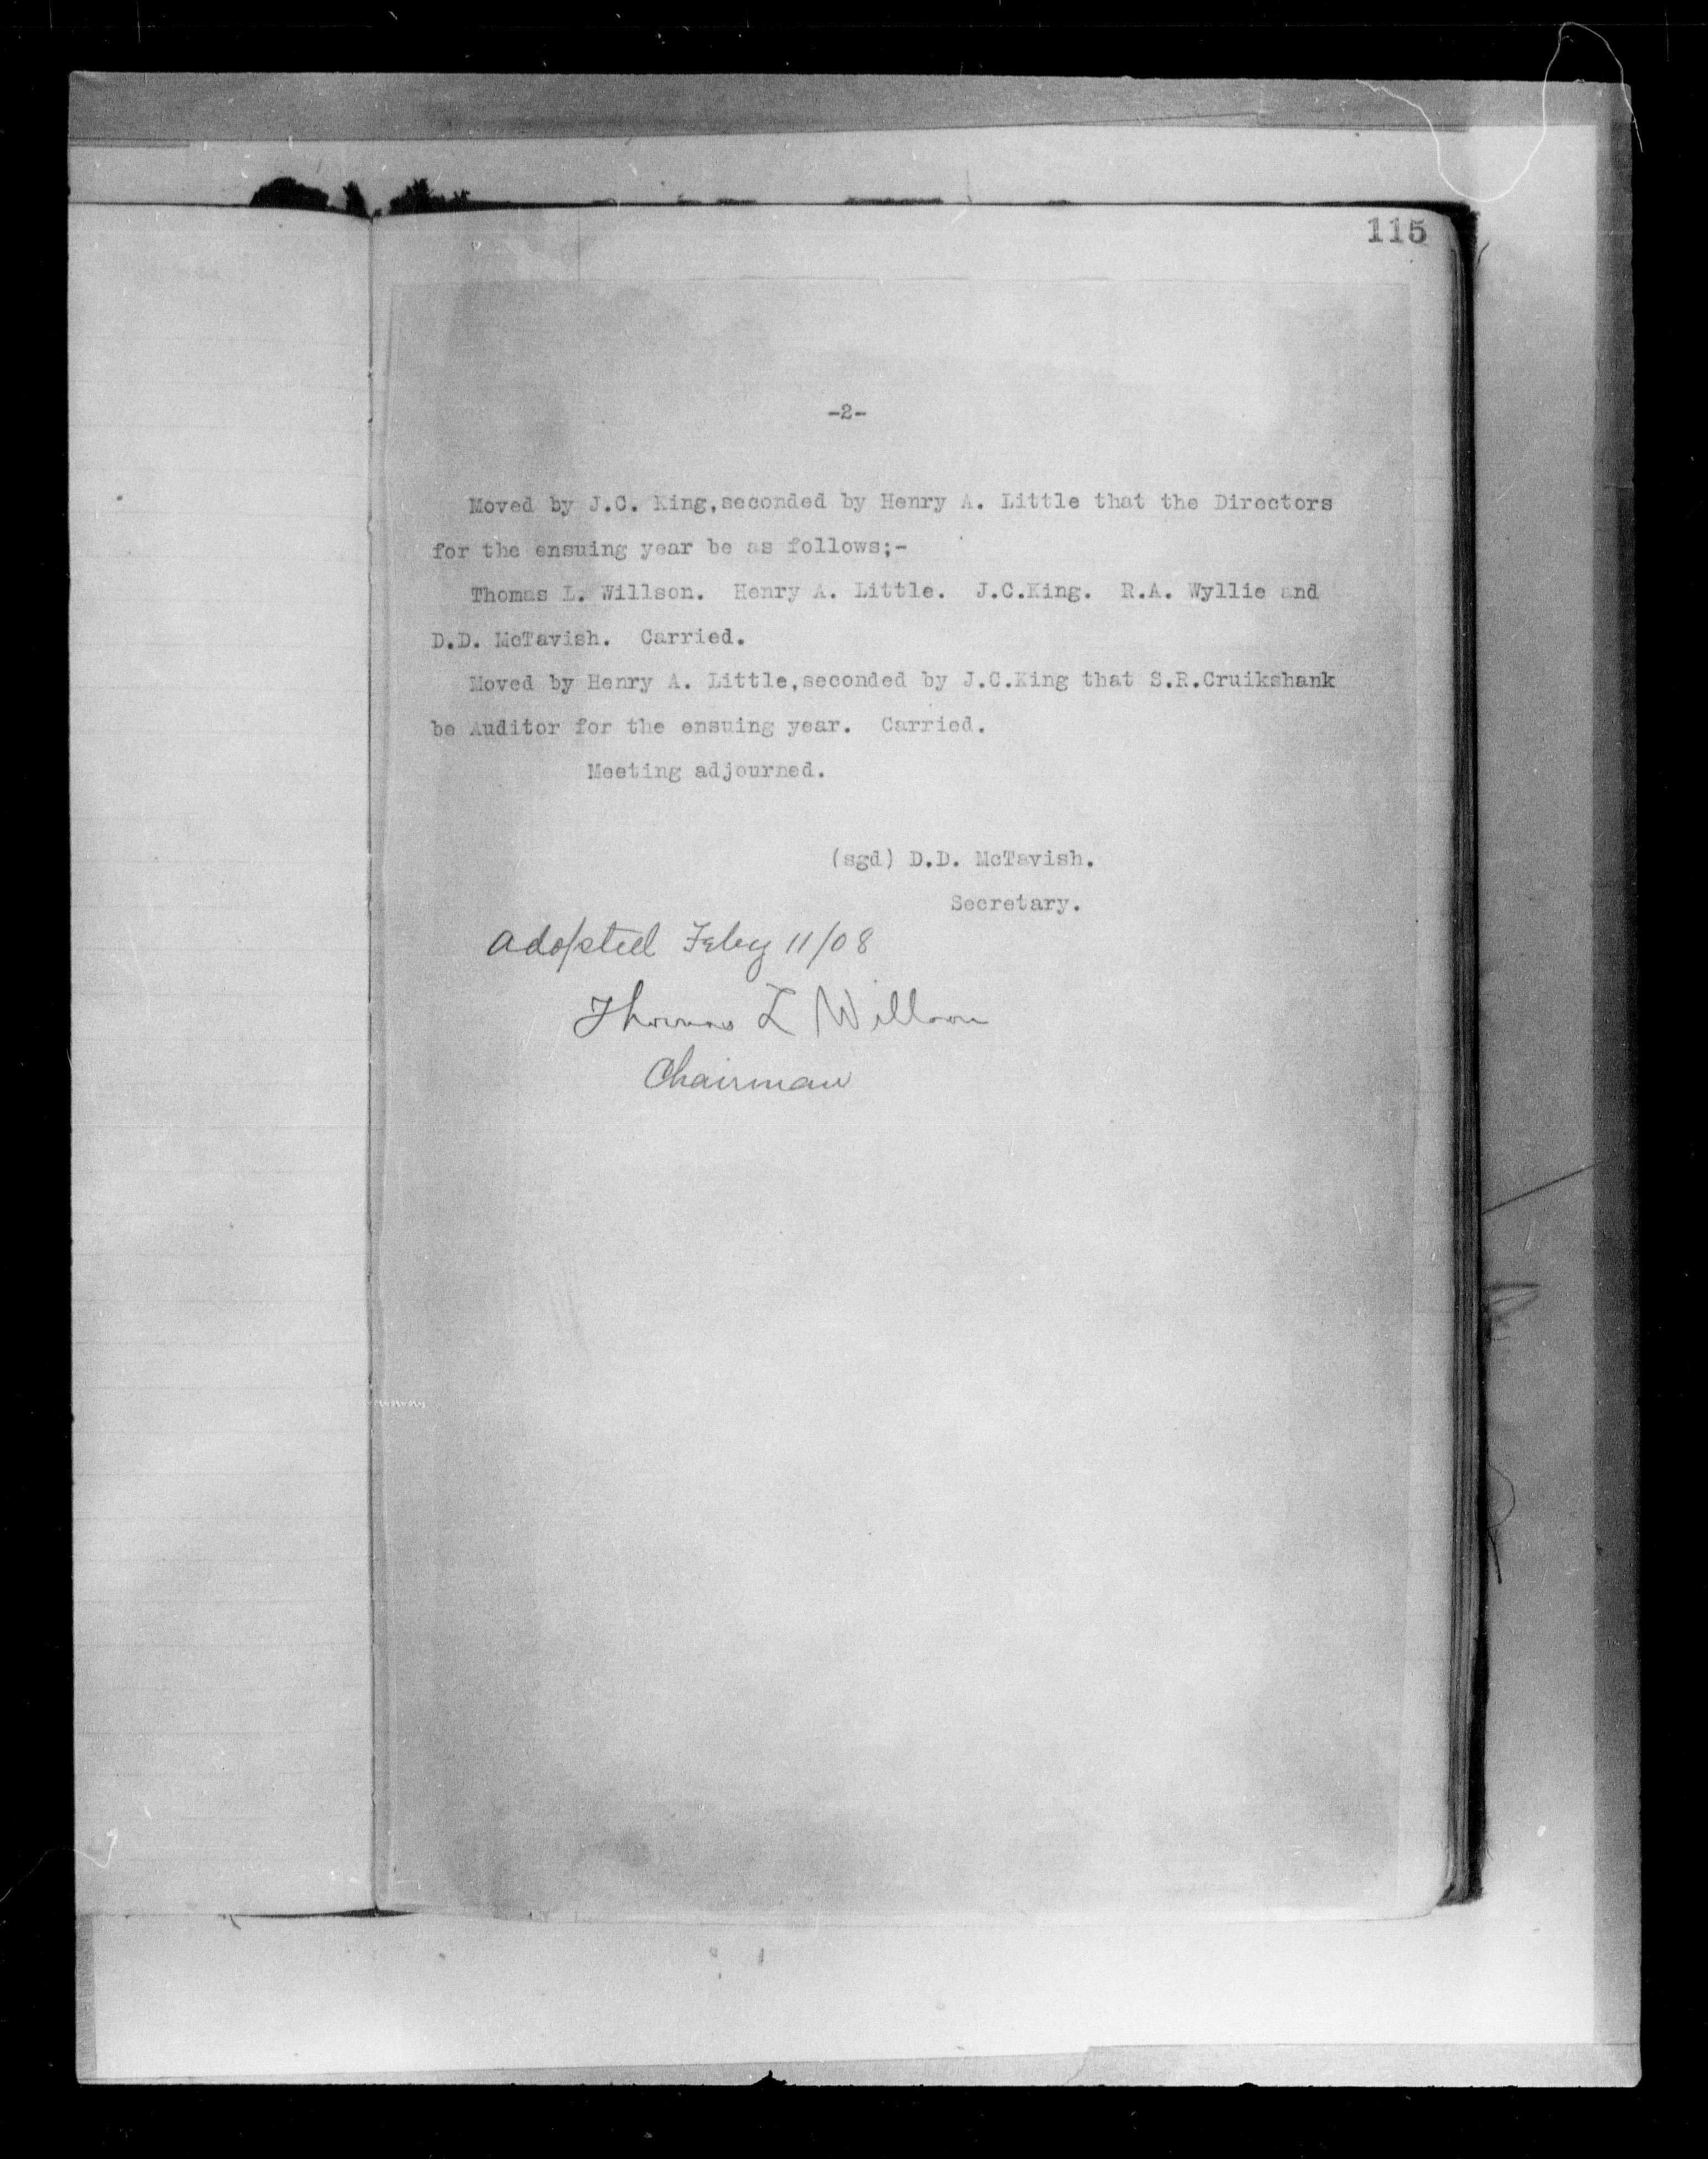 115
-2-
Moved by J.C. King,seconded by Henry A. Little that the Directors
for the ensuing year be as follows;-
Thomas L. Willson. Henry A. Little. J.C.King. R.A. Wyllie and
D.D. McTavish. Carried.
Moved by Henry A. Little,seconded by J.C.King that S.R.Cruikshank
be Auditor for the ensuing year. Carried.
Meeting adjourned.
(sgd) D.D. McTavish.
Secretary.
Adopted Feby 11/08
Thomas L Willson
Chairman